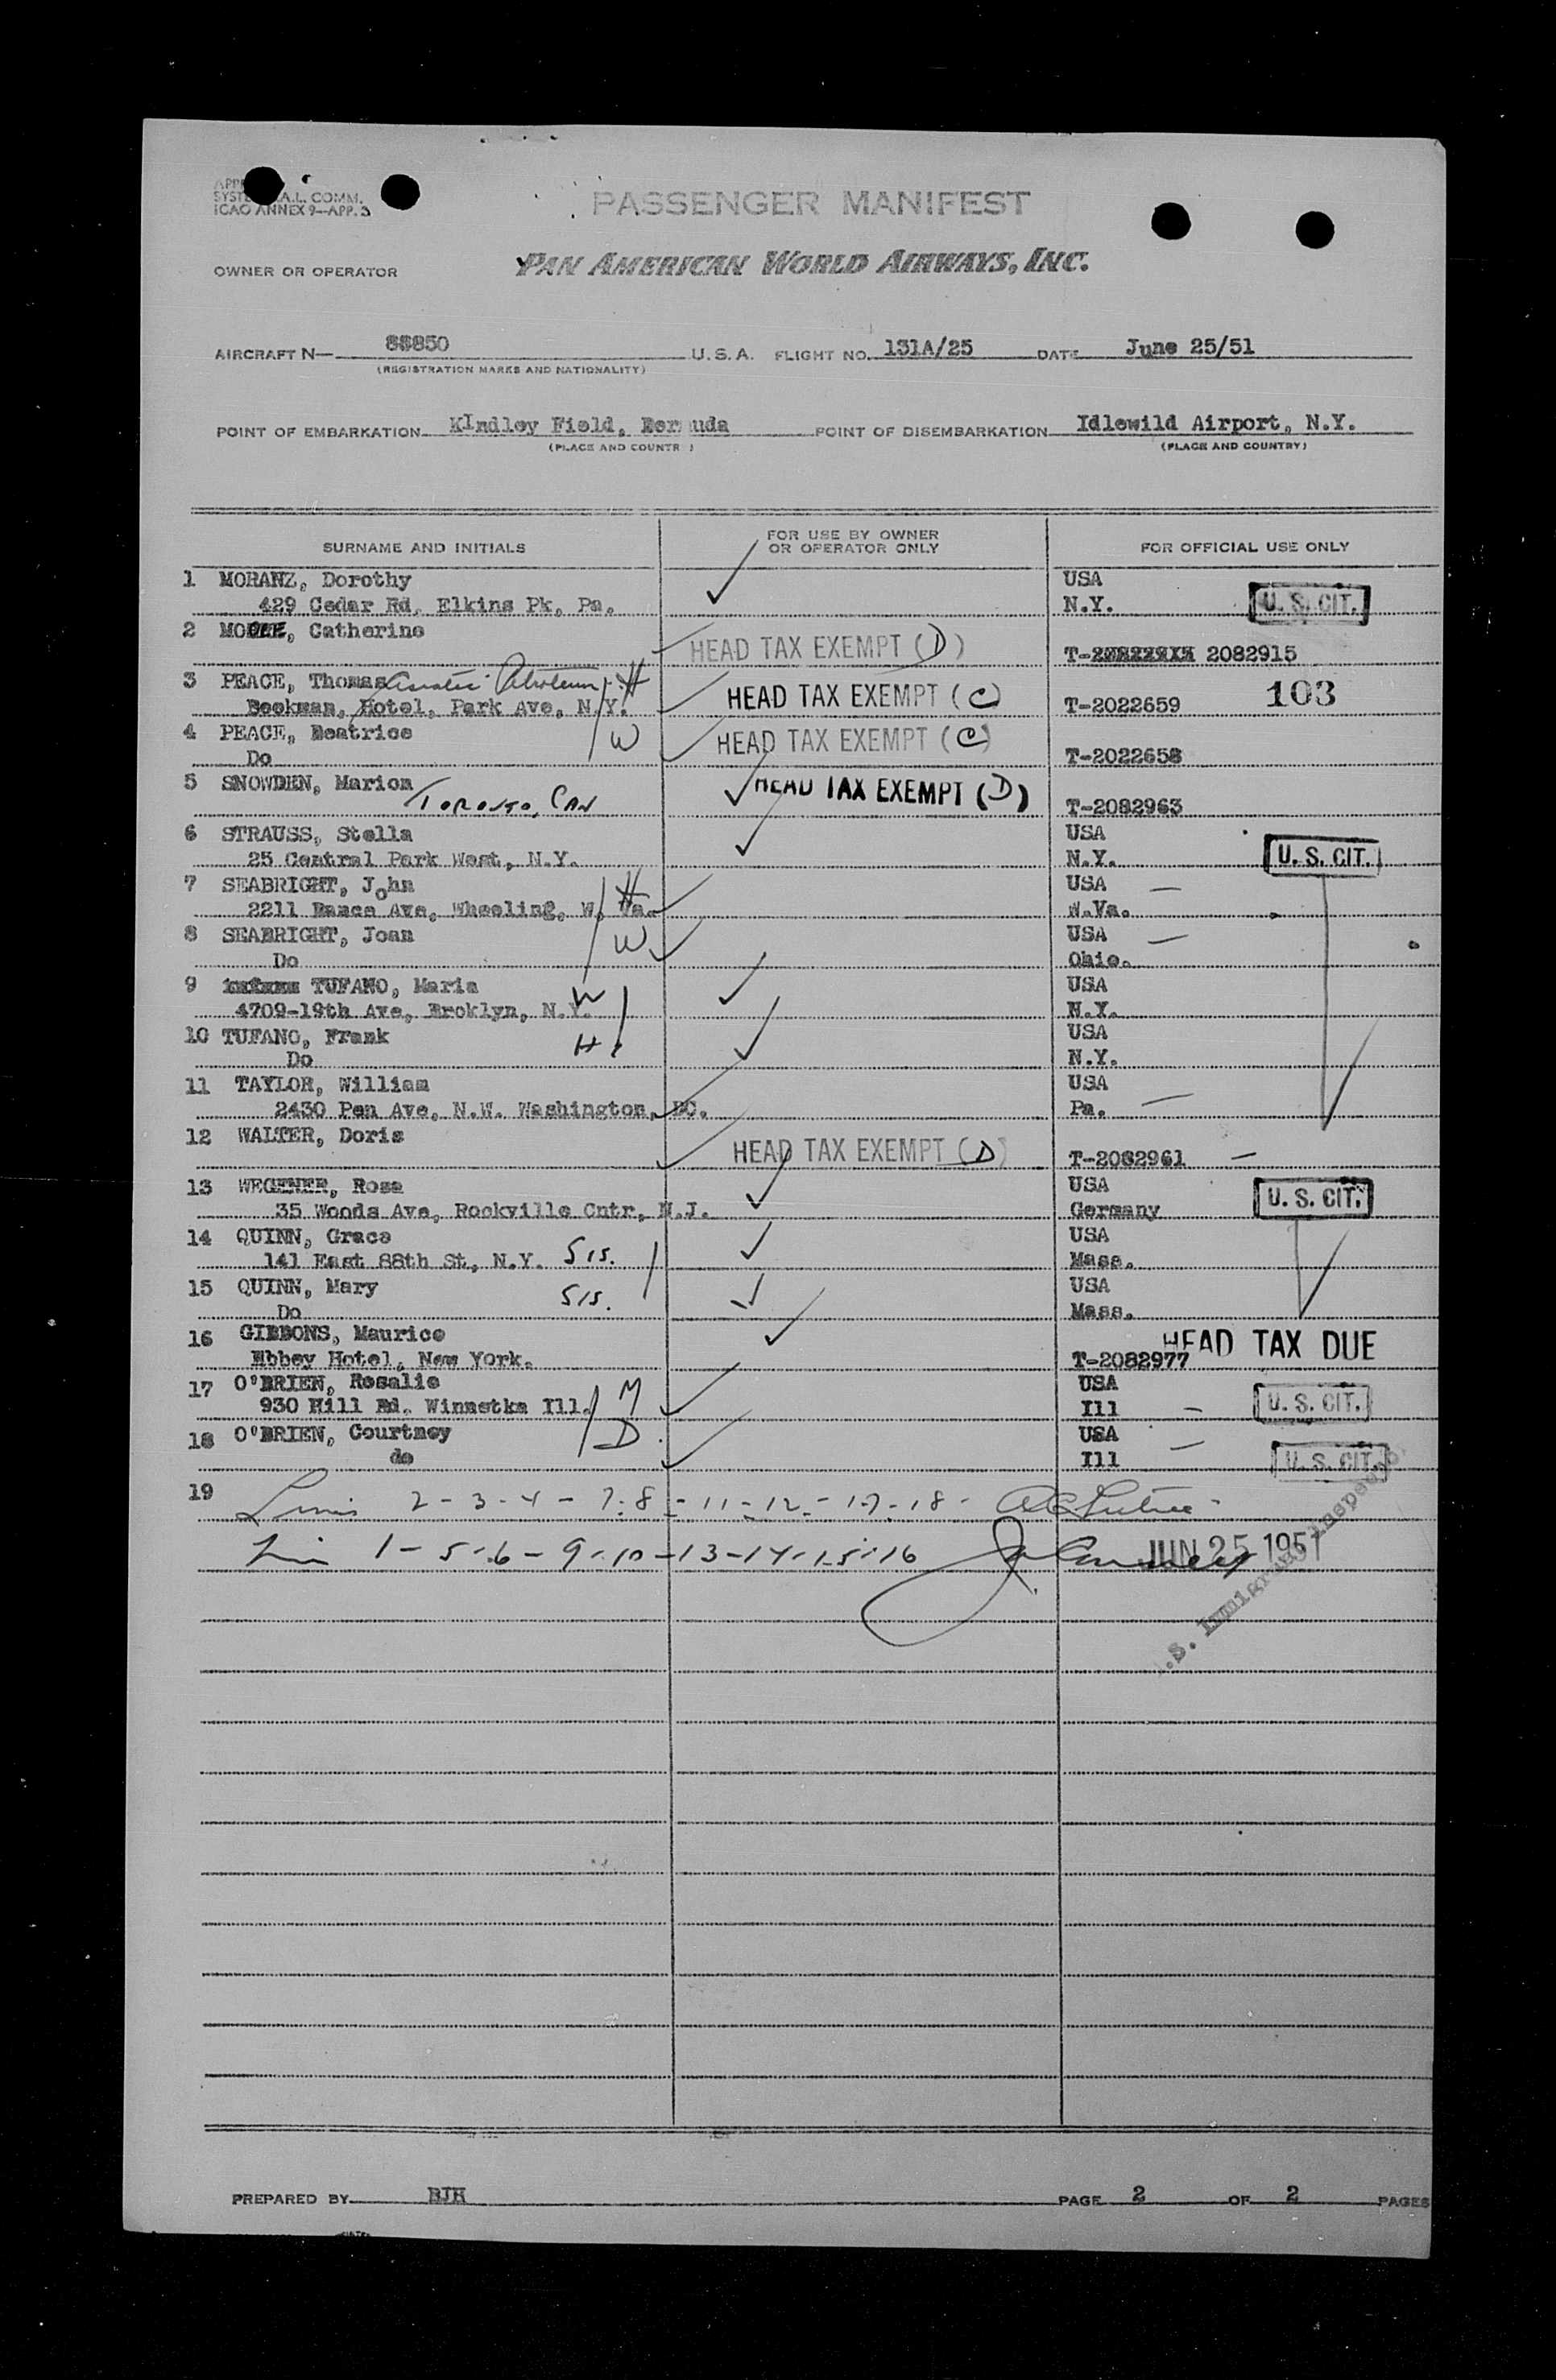 SYST A.L. COMM.
ICAO ANNEX 9—APP. 3
PASSENGER MANIFEST
OWNER OR OPERATOR PAN AMERICAN WORLD AIRWAYS, INC.
AIRCRAFT N— 88850 U. S. A. FLIGHT NO. 131A/25 DATE June 25/51
(REGISTRATION MARKS AND NATIONALITY)
POINT OF EMBARKATION KIndley Field, Bermuda POINT OF DISEMBARKATION Idlewild Airport, N.Y.
(PLACE AND COUNTR ) (PLACE AND COUNTRY)
SURNAME AND INITIALS FOR USE BY OWNER OR OPERATOR ONLY FOR OFFICIAL USE ONLY
1 MORANZ, Dorothy USA
429 Cedar Rd, Elkins Pk, Pa. N.Y. U. S. CIT.
2 Catherine HEAD TAX EXEMPT (D)
T- 2082915
3 PEACE, Thomas Petroleum H HEAD TAX EXEMPT (C) 103
Beekman, Hotel, Park Ave, N.Y. T-2022659
4 PEACE, Beatrice W HEAD TAX EXEMPT (C)
Do T-2022658
5 SNOWDEN, Marion HEAD TAX EXEMPT (D)
TORONTO, CAN T-2082963
6 STRAUSS, Stella USA
25 Central Park West, N.Y. N.Y. U. S. CIT.
7 SEABRIGHT, John H USA
2211 Ave, Wheeling, W. Va. W.Va.
8 SEABRIGHT, Joan W USA
Do Ohio.
9 TUFANO, Maria W USA
4709-19th Ave, Broklyn, N.Y. N.Y.
10 TUFANO, Frank H USA
Do N.Y.
11 TAYLOR, William USA
2430 Pen Ave, N.W. Washington, DC. Pa.
12 WALTER, Doris HEAD TAX EXEMPT (D)
T-2082961
13 WEGENER, Rose USA
35 Woods Ave, Rockville Cntr, N.J. Germany U. S. CIT.
14 QUINN, Grace USA
141 East 88th St, N.Y. SIS. Mass.
15 QUINN, Mary SIS. USA
Do Mass.
16 GIBBONS, Maurice HEAD TAX DUE
Ebbey Hotel, New York. T-2082977
17 O'BRIEN, Rosalie M USA
930 Hill Rd. Winnetka Ill. Ill U. S. CIT.
18 O'BRIEN, Courtney D USA
do Ill U. S. CIT.
19 2 - 3 - 4 - 7 - 8 - 11 - 12 - 17 - 18 -
1 - 5 - 6 - 9 - 10 - 13 - 14 - 15 - 16 JUN 25 1951
.S. Immigrant Inspector
PREPARED BY BJH PAGE 2 OF 2 PAGES